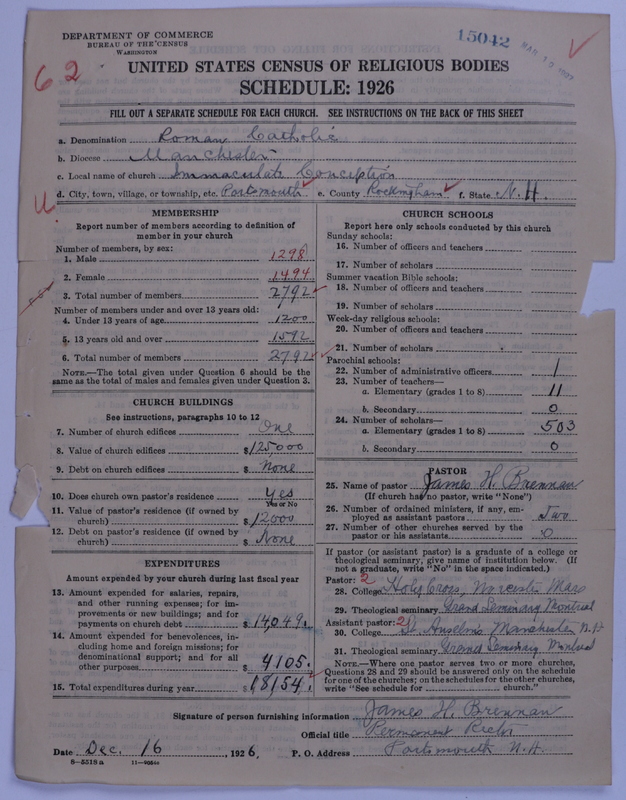 DEPARTMENT OF COMMERCE
BUREAU OF THE CENSUS
WASHINGTON
15042
62
UNITED STATES CENSUS OF RELIGIOUS BODIES
SCHEDULE: 1926
FILL OUT A SEPARATE SCHEDULE FOR EACH CHURCH. SEE INSTRUCTIONS ON THE BACK OF THIS SHEET
a. Denomination Roman Catholic
b. Diocese Manchester
c. Local name of church Immaculate Conception
d. City, town, village, or township, etc. Portsmouth e. County Rockingham f. State N. H.
U
MEMBERSHIP
Report number of members according to definition of member in your church
Number of members, by sex:
1. Male 1298
2. Female 1494
3. Total number of members 2792
Number of members under and over 13 years old:
4. Under 13 years of age 1200
5. 13 years old and over 1592
6. Total number of members 2792
NOTE.—The total given under Question 6 should be the
same as the total of males and females given under Question 3.
CHURCH BUILDINGS
See instructions, paragraphs 10 to 12
7. Number of church edifices One
8. Value of church edifices $125000
9. Debt on church edifices $ None
10. Does church own pastor's residence Yes
Yes or No
11. Value of pastor's residence (if owned by
church) $12000
12. Debt on pastor's residence (if owned by
church) $ None
EXPENDITURES
Amount expended by your church during last fiscal year
13. Amount expended for salaries, repairs,
and other running expenses; for im-
provements or new buildings; and for
payments on church debt $14,049.
14. Amount expended for benevolences, in-
cluding home and foreign missions; for
denominational support; and for all
other purposes $ 4105.
15. Total expenditures during year $18154.
CHURCH SCHOOLS
Report here only schools conducted by this church
Sunday schools:
16. Number of officers and teachers
17. Number of scholars
Summer vacation Bible schools:
18. Number of officers and teachers
19. Number of scholars
Week-day religious schools:
20. Number of officers and teachers
21. Number of scholars
Parochial schools:
22. Number of administrative officers 1
23. Number of teachers—
a. Elementary (grades 1 to 8) 11
b. Secondary 0
24. Number of scholars—
a. Elementary (grades 1 to 8) 503
b. Secondary 0
PASTOR
25. Name of pastor James H. Brennan
(If church has no pastor, write "None")
26. Number of ordained ministers, if any, em-
ployed as assistant pastors Two
27. Number of other churches served by the
pastor or his assistants 0
If pastor (or assistant pastor) is a graduate of a college or
theological seminary, give name of institution below. (If
not a graduate, write "No" in the space indicated.)
Pastor: 2
28. College Holy Cross, Worcester Mass
29. Theological seminary Grand Seminary Montreal
Assistant pastor: 2
30. College St. Anselm's Manchester N.H
31. Theological seminary Grand Seminary Montreal
NOTE.—Where one pastor serves two or more churches,
Questions 28 and 29 should be answered only on the schedule
for one of the churches; on the schedules for the other churches,
write "See schedule for church."
Signature of person furnishing information James H. Brennan
Official title Permanent Rector
Date Dec. 16, 1926. P. O. Address Portsmouth N.H.
8—5518 a